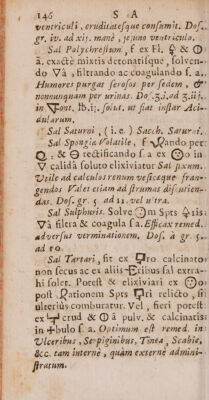 146 S A
ventriculi, cruditatesque consumit. Dos.
gr. iv. ad xij. manè, jejuno ventriculo.
Sal Polychrestum, f ex Fl. 🜍 & 🜕
ā, exactè mixtis detonatisque, solven-
do 🜄ā, filtrando ac coagulando s. a.
Humores purgat serosos per sedem, &
nonnunquam per urinas. Do. ʒ.j. ad ʒ iij.
in font. ℔.j. solut. ut fiat instar Aci-
dularum.
Sal Saturni, (i. e.) Sacch. Saturni.
Sal Spongiæ Volatile, f ando per
. & rectificando f. a ex in
🜄 calidâ soluto elixiviatur Sal fixum.
Utile ad calculos renum vesicæque fran-
gendos Valet etiam ad strumas discutien-
das. Dos. gr. 5 ad 11. vel ultra.
Sal Sulphuris. Solve m Spts 🜍is:
🜄ā filtra & coagula s a. Efficax remed.
adversus verminationem. Dos. à gr. 5.
ad 10.
Sal Tartari, fit ex ro. calcinato
non secus ac ex aliis ribus sal extra-
hi solet. Potest & elixiviari ex
post ationem Spts ri relicto, si
ulterius comburatur. Vel, fieri potest:
ex crud & 🜕 ā pulv. & calcinatis
in bulo s. a. Optimum est remed. in
Ulceribus, Serpiginibus, Tinea, Scabie,
&c. tam internè, quàm externè admini-
stratum.